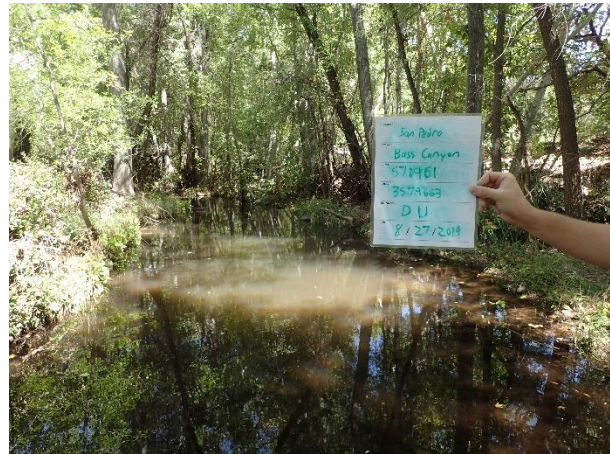 San Pedro
Bass Canyon
570961
3579663
D U
8/27/2019